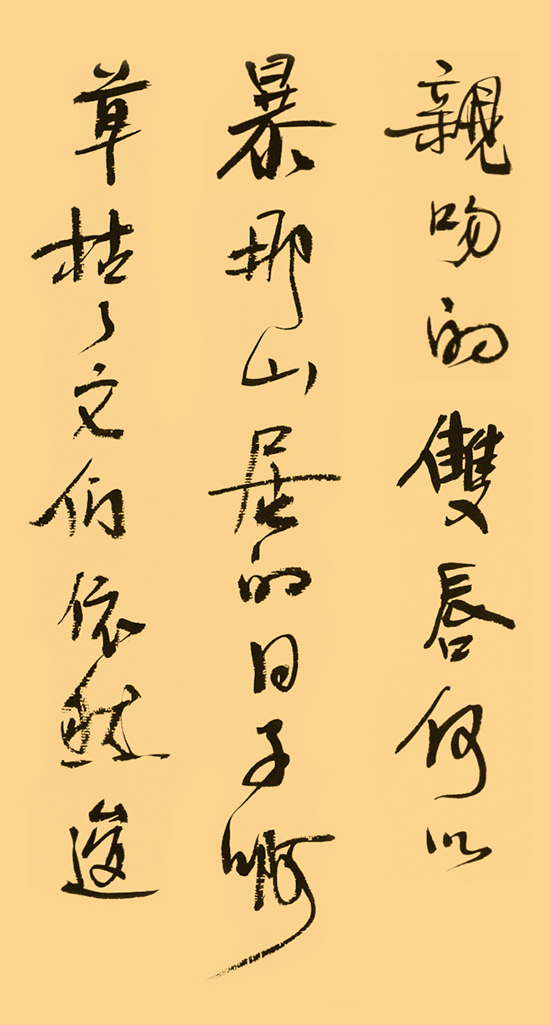 親吻的雙唇何以
暴那山居的日子啊
草枯了文们依然逡